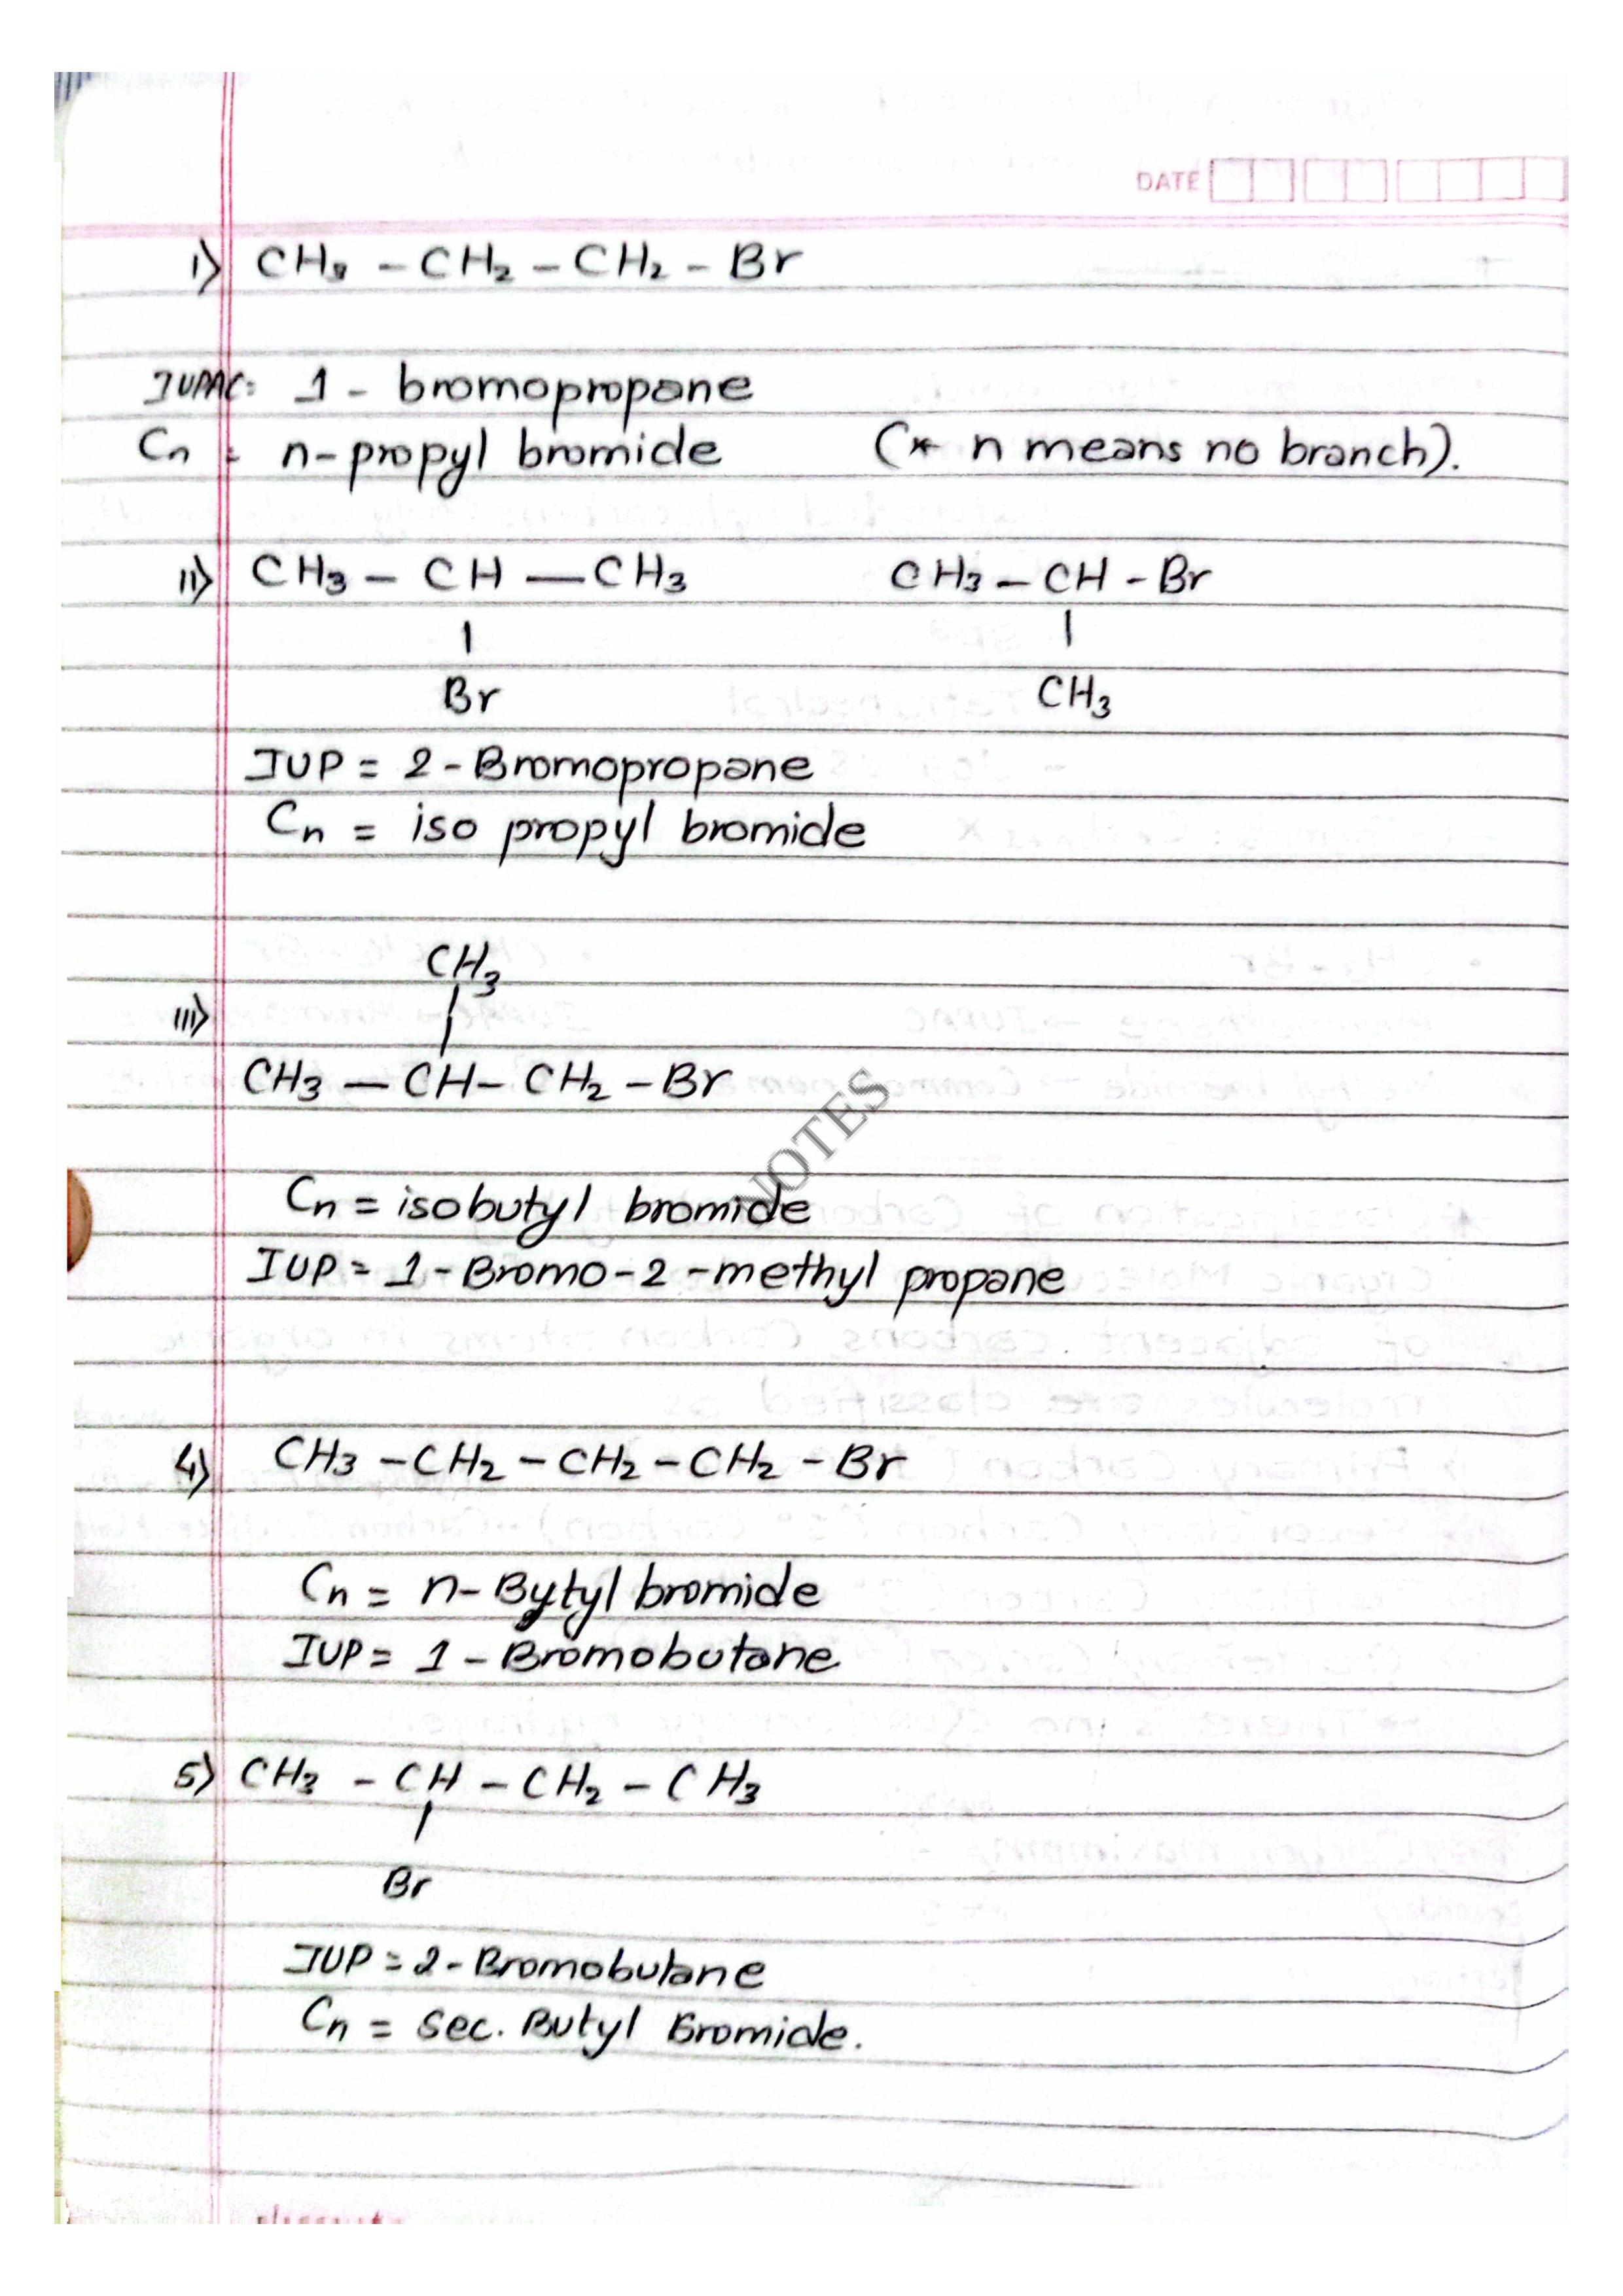 DATE
1) CH3 - CH2 - CH2 - Br
IUPAC: 1 - bromopropane
Cn : n-propyl bromide (* n means no branch).
11) CH3 - CH — CH3 CH3 - CH - Br
| |
Br CH3
IUP = 2 - Bromopropane
Cn = iso propyl bromide
CH3
111) |
CH3 — CH - CH2 - Br
NOTES
Cn = isobutyl bromide
IUP = 1 - Bromo - 2 - methyl propane
4) CH3 - CH2 - CH2 - CH2 - Br
Cn = n- Bytyl bromide
IUP = 1 - Bromobutane
5) CH3 - CH - CH2 - CH3
|
Br
IUP = 2 - Bromobutane
Cn = sec. Butyl Bromide.